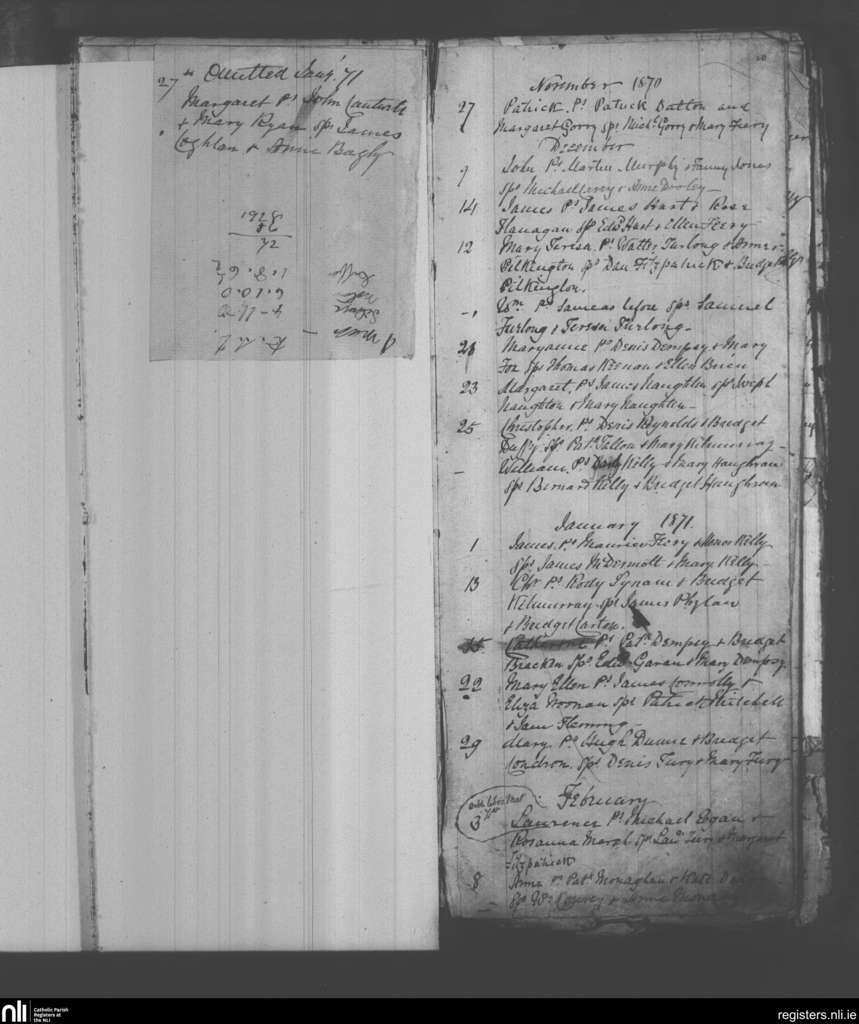 27th Omitted Jany. 71
Margaret Ps John Cantwell
& Mary Ryan Sps James
Coghlan & Anne Bagly
1928
26
72
1.8.6½
6.10.0
20
November 1870
27 Patrick. Ps Patrick Dalton and
Margaret Gorry Sps Michl. Gorry & Mary Feery
December
9 John Ps Martin Murphy & Fanny Jones
Sps Michael & Anne Dooley
14 James Ps James Hart & Rose
Flanagan Sps Edwd Hart & Ellen Feery
12 Mary Teresa Ps Walter Furlong & Anne
Pilkington Sps Dan Fitzpatrick & Bridget
Pilkington.
Wm Ps same as before Sps Samuel
Furlong & Teresa Furlong
21 Maryanne Ps Denis Dempsy & Mary
Fox Sps Thomas Keenan & Ellen Brien
23 Margaret. Ps James Naughten Sps Joseph
Naughton & Mary Naughten
25 Christopher. Ps Denis Reynolds & Bridget
Duffy Sps Patk Fallon & Mary Kilmurray
— William. Ps Kelly & Mary Haughran
Sps Bernard Kelly & Bridget Haughran
January 1871.
1 James. Ps Maurice Feery & Honor Kelly
Sps James McDermott & Mary Kelly
13 Chr Ps Rody Tynam & Bridget
Kilmurray Sps James
& Bridget Carton.
15 Catherine Ps Patk Dempsey & Bridget
Bracken Sps Edwd Garan & Mary Dempsy
22 Mary Ellen Ps James Connolly &
Eliza Noonan Sps Patrick Mitchell
& Jane Fleming
29 Mary. Ps Hugh Dunne & Bridget
Condron. Sps Denis Fury & Mary Fury
February
3 Laurence Ps Michael Egan &
Rosanna Sps Law & Margaret
Fitzpatrick
8 Anne Ps Patk Monaghan & Kate
Sps & Anne
nli
Catholic Parish
Registers at
the NLI
registers.nli.ie